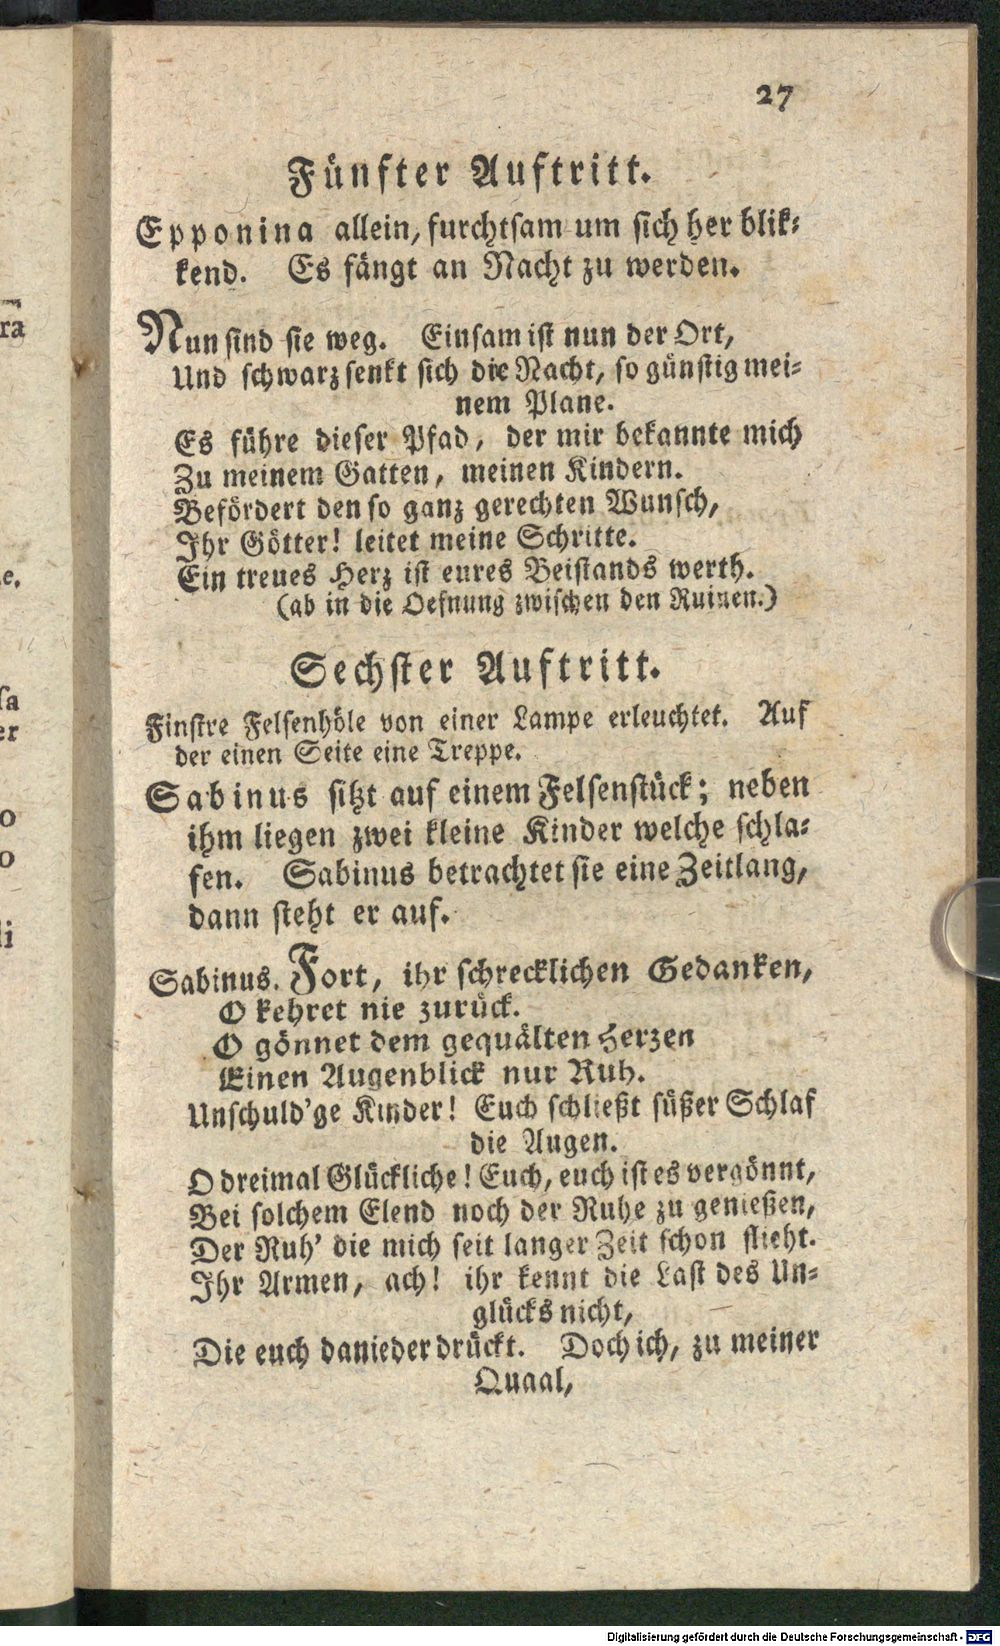 27
Fünfter Auftritt.
Epponina allein, furchtsam um sich her blik-
kend. Es fängt an Nacht zu werden.
Nun sind sie weg. Einsam ist nun der Ort,
Und schwarz senkt sich die Nacht, so günstig mei-
nem Plane.
Es führe dieser Pfad, der mir bekannte mich
Zu meinem Gatten, meinen Kindern.
Befördert den so ganz gerechten Wunsch,
Ihr Götter! leitet meine Schritte.
Ein treues Herz ist eures Beistands werth.
(ab in die Oefnung zwischen den Ruinen.)
Sechster Auftritt.
Finstre Felsenhöle von einer Lampe erleuchtet. Auf
der einen Seite eine Treppe.
Sabinus sitzt auf einem Felsenstück; neben
ihm liegen zwei kleine Kinder welche schla-
fen. Sabinus betrachtet sie eine Zeitlang,
dann steht er auf.
Sabinus. Fort, ihr schrecklichen Gedanken,
O kehret nie zurück.
O gönnet dem gequälten Herzen
Einen Augenblick nur Ruh.
Unschuld'ge Kinder! Euch schließt süßer Schlaf
die Augen.
O dreimal Glückliche! Euch, euch ist es vergönnt,
Bei solchem Elend noch der Ruhe zu genießen,
Der Ruh' die mich seit langer Zeit schon flieht.
Ihr Armen, ach! ihr kennt die Last des Un-
glücks nicht,
Die euch danieder drückt. Doch ich, zu meiner
Quaal,
Digitalisierung gefördert durch die Deutsche Forschungsgemeinschaft - DFG